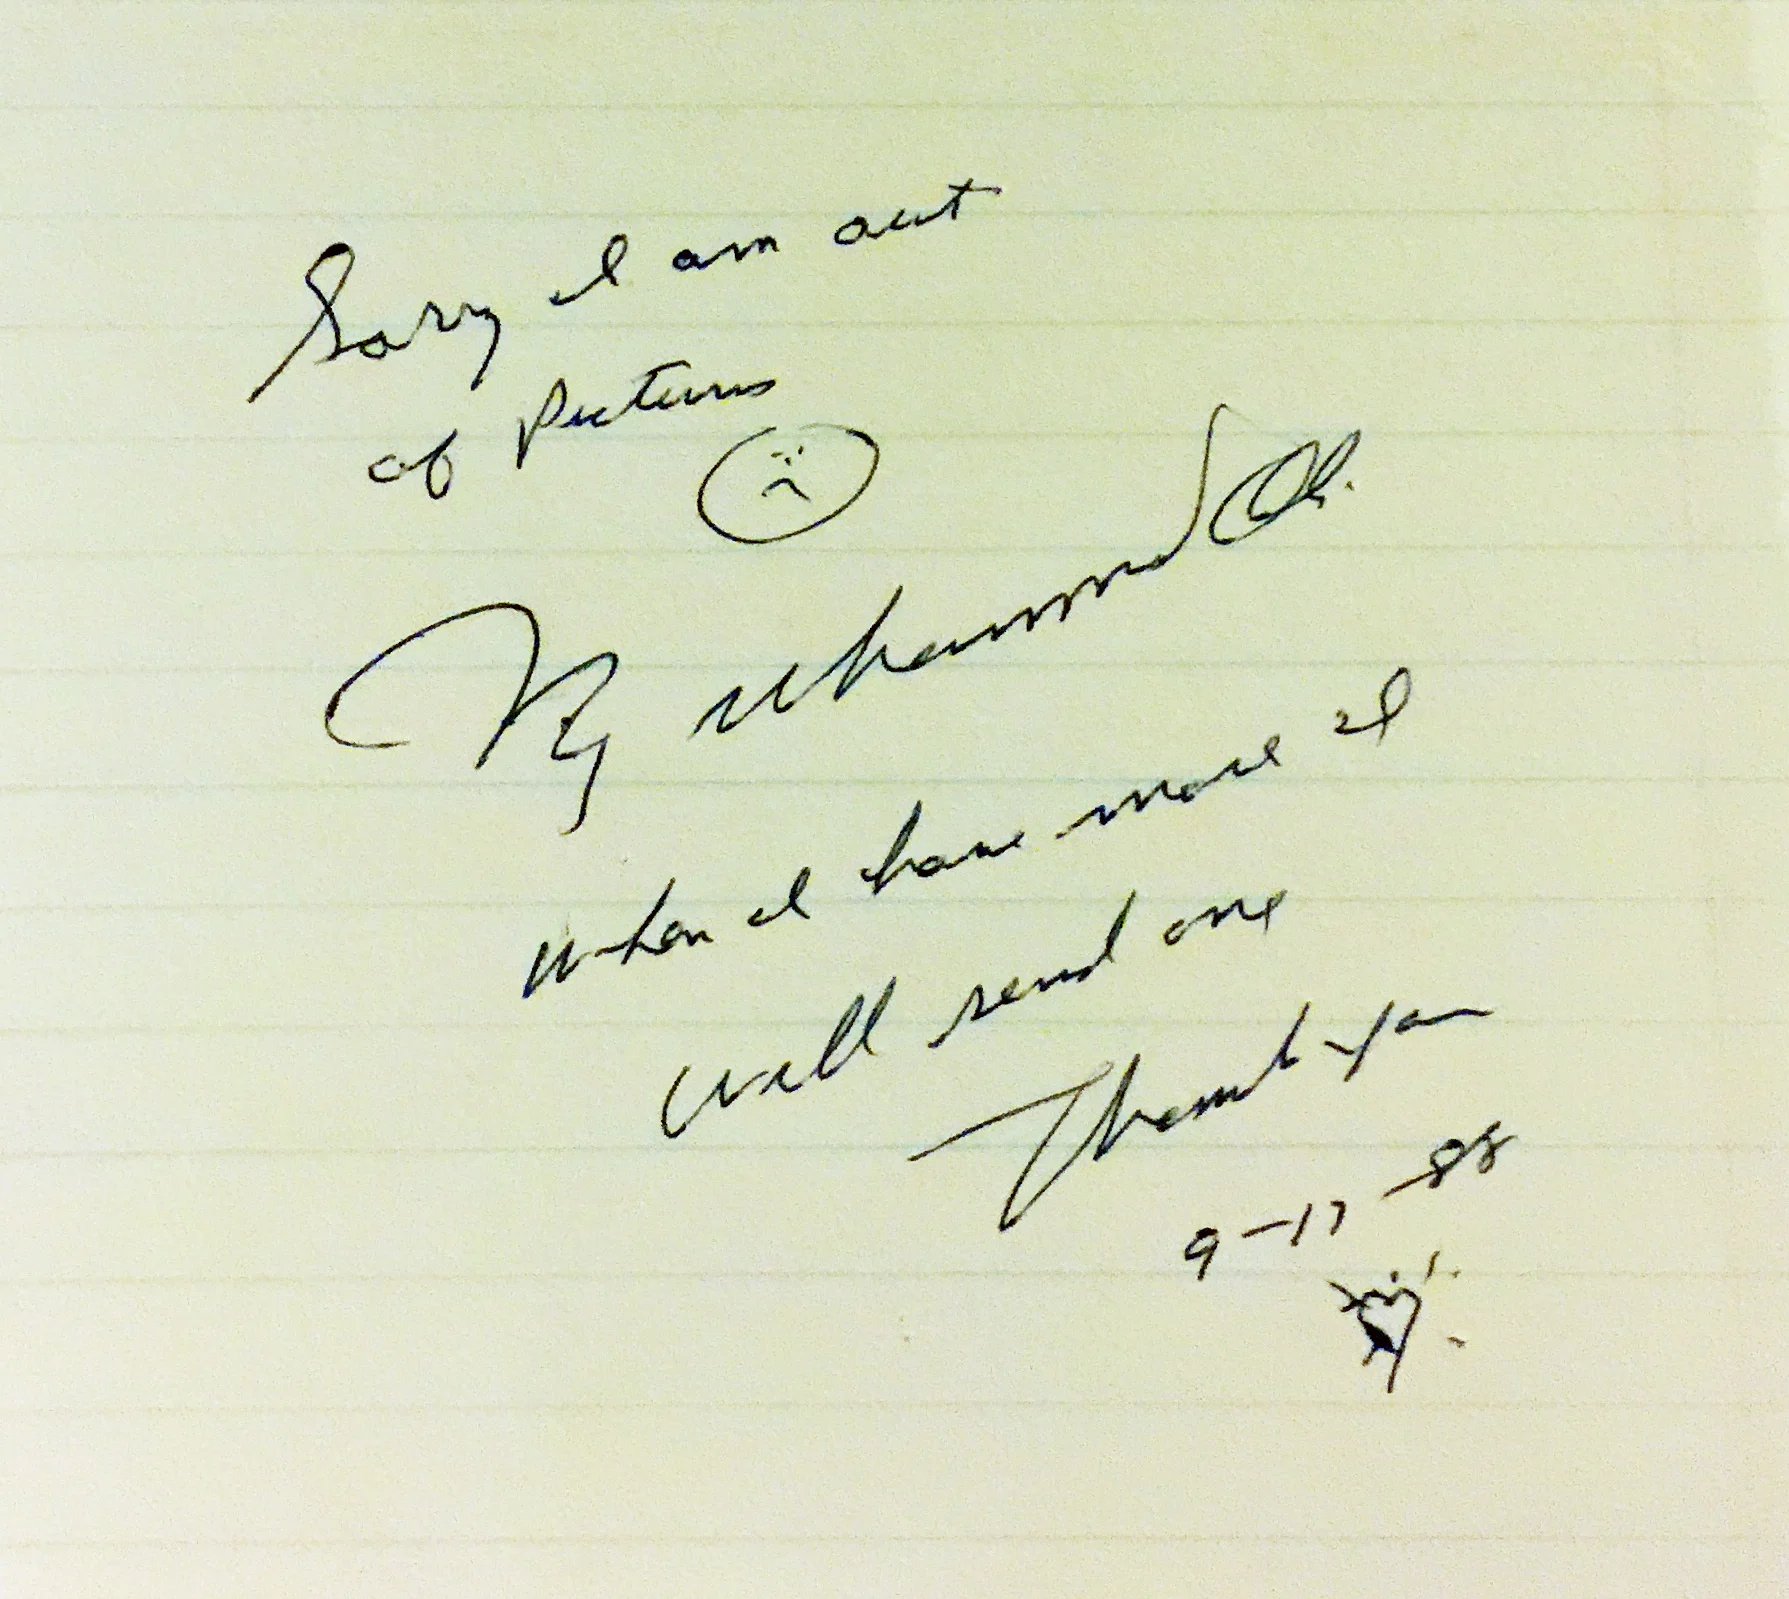 Sorry I am out
of pictures
Muhammad Ali
when I have more I
will send one
Thank you
9-17-88